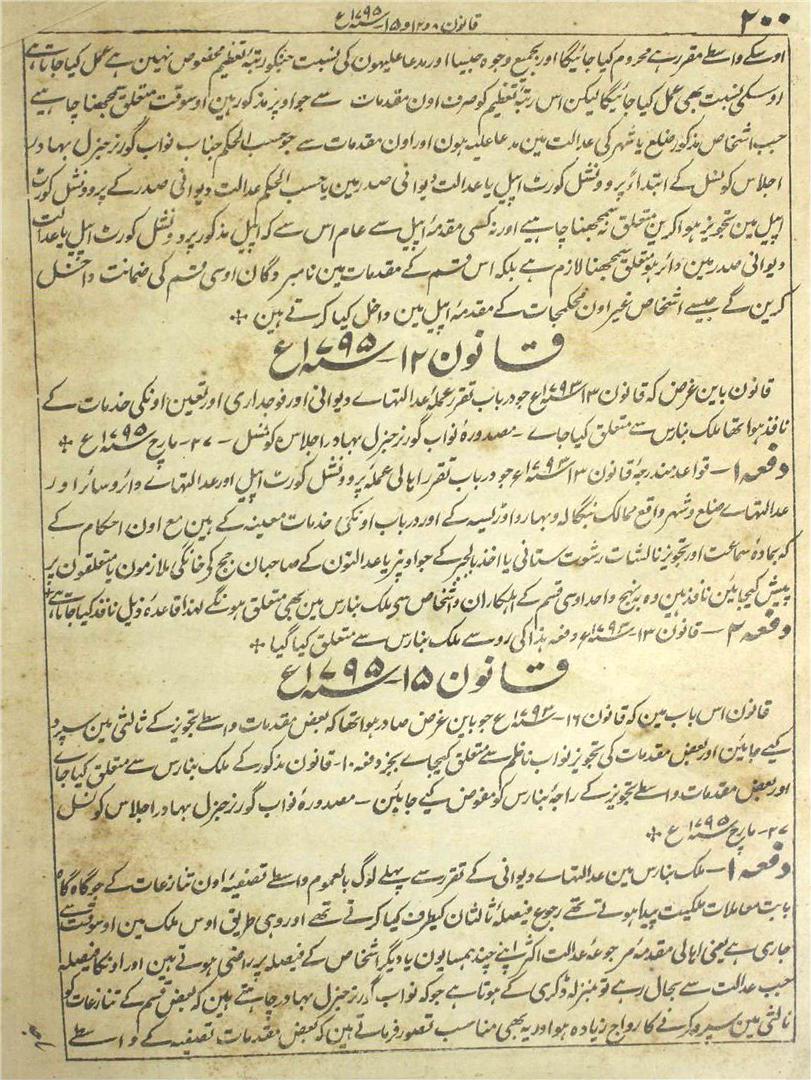 ۲۰۰
قانون ۸ و ۱۲ و ۱۵ سنہ ۱۷۹۵ع
اوسکے واسطے مقرر ہے محروم کیا جائیگا اور بجمیع وجوہ جیسا اور مدعا علیہون کی نسبت جنکو رتبۂ تعظیم مخصوص نہین ہے عمل کیا جاتا ہے
اوسکی نسبت بھی عمل کیا جائیگا لیکن اس رتبۂ تعظیم کو صرف اون مقدمات سے جو اوپر مذکور ہین اوسوقت متعلق سمجھنا چاہیے
جب اشخاص مذکور ضلع یا شہر کی عدالت مین مدعا علیہ ہون اور اون مقدمات سے جو حسب الحکم جناب نواب گورنر جنرل بہادر
اجلاس کونسل کے ابتداءً پروونشل کورٹ اپیل یا عدالت دیوانی صدر مین یا حسب الحکم عدالت دیوانی صدر کے پروونشل کورٹ
اپیل مین تجویز ہوا کرین متعلق نہ سمجھنا چاہیے اور نہ کسی مقدمۂ اپیل سے عام اس سے کہ اپیل مذکور پروونشل کورٹ اپیل یا عدالت
دیوانی صدر مین دائر ہو متعلق سمجھنا لازم ہے بلکہ اس قسم کے مقدمات مین نامبردگان اوسی قسم کی ضمانت داخل
کرین گے جیسے اشخاص غیر اون محکمجات کے مقدمۂ اپیل مین داخل کیا کرتے ہین ❊
قانون ۱۲ سنہ ۱۷۹۵ع
قانون باین غرض کہ قانون ۱۳ سنہ ۱۷۹۳ع جو درباب تقرر عملۂ عدالتہاے دیوانی اور فوجداری اور تعین اونکی خدمات کے
نافذ ہوا تھا ملک بنارس سے متعلق کیا جاے – مصدورہ نواب گورنر جنرل بہادر اجلاس کونسل – ۲۷ – مارچ سنہ ۱۷۹۵ع ❊
دفعہ ۱ – قواعد مندرجۂ قانون ۱۳ سنہ ۱۷۹۳ع جو درباب تقرر اہالی عملۂ پروونشل کورٹ اپیل اور عدالتہاے دائر و سائر اور
عدالتہاے ضلع و شہر واقع ممالک بنگالہ و بہار و اوڑیسہ کے اور درباب اونکی خدمات معینہ کے ہین مع اون احکام کے
کہ بمادۂ سماعت اور تجویز نالشات رشوت ستانی یا اخذ بالجبر کے جو اونپر یا عدالتون کے صاحبان جج کی خانگی ملازمون یا متعلقون پر
پیش کیجائین نافذ ہین وہ بہ نہج واحد اوسی قسم کے اہلکاران و اشخاص سے ملک بنارس مین بھی متعلق ہونگے لہذا قاعدۂ ذیل نافذ کیا جاتا ہے ❊
دفعہ ۲ – قانون ۱۳ سنہ ۱۷۹۳ع دفعہ ہذا کی رو سے ملک بنارس سے متعلق کیا گیا ❊
قانون ۱۵ سنہ ۱۷۹۵ع
قانون اس باب مین کہ قانون ۱۶ سنہ ۱۷۹۳ع جو باین غرض صادر ہوا تھا کہ بعض مقدمات واسطے تجویز کے ثالثی مین سپرد
کیے جائین اور بعض مقدمات کی تجویز نواب ناظم سے متعلق کیجاے بجز دفعہ ۱۰ – قانون مذکور کے ملک بنارس سے متعلق کیا جاے
اور بعض مقدمات واسطے تجویز کے راجۂ بنارس کو مفوض کیے جائین – مصدورہ نواب گورنر جنرل بہادر اجلاس کونسل
۲۷ – مارچ سنہ ۱۷۹۵ع ❊
دفعہ ۱ – ملک بنارس مین عدالتہاے دیوانی کے تقرر سے پہلے لوگ بالعموم واسطے تصفیۂ اون تنازعات کے جو گاہ گاہ
بابت معاملات ملکیت پیدا ہوتے تھے رجوع فیصلۂ ثالثان کیطرف کیا کرتے تھے اور وہی طریق اوس ملک مین اوسوقت سے
جاری ہے یعنی اہالی مقدمۂ مرجوعۂ عدالت اکثر اپنے چند ہمسایون یا دیگر اشخاص کے فیصلہ پر راضی ہوتے ہین اور اونکا فیصلہ
جب عدالت سے بحال رہے تو بمنزلہ ڈگری کے ہوتا ہے جو کہ نواب گورنر جنرل بہادر چاہتے ہین کہ بعض قسم کے تنازعات کو
ثالثی مین سپرد کرنے کا رواج زیادہ ہو اور یہ بھی مناسب تصور فرماتے ہین کہ بعض مقدمات تصفیہ کے واسطے